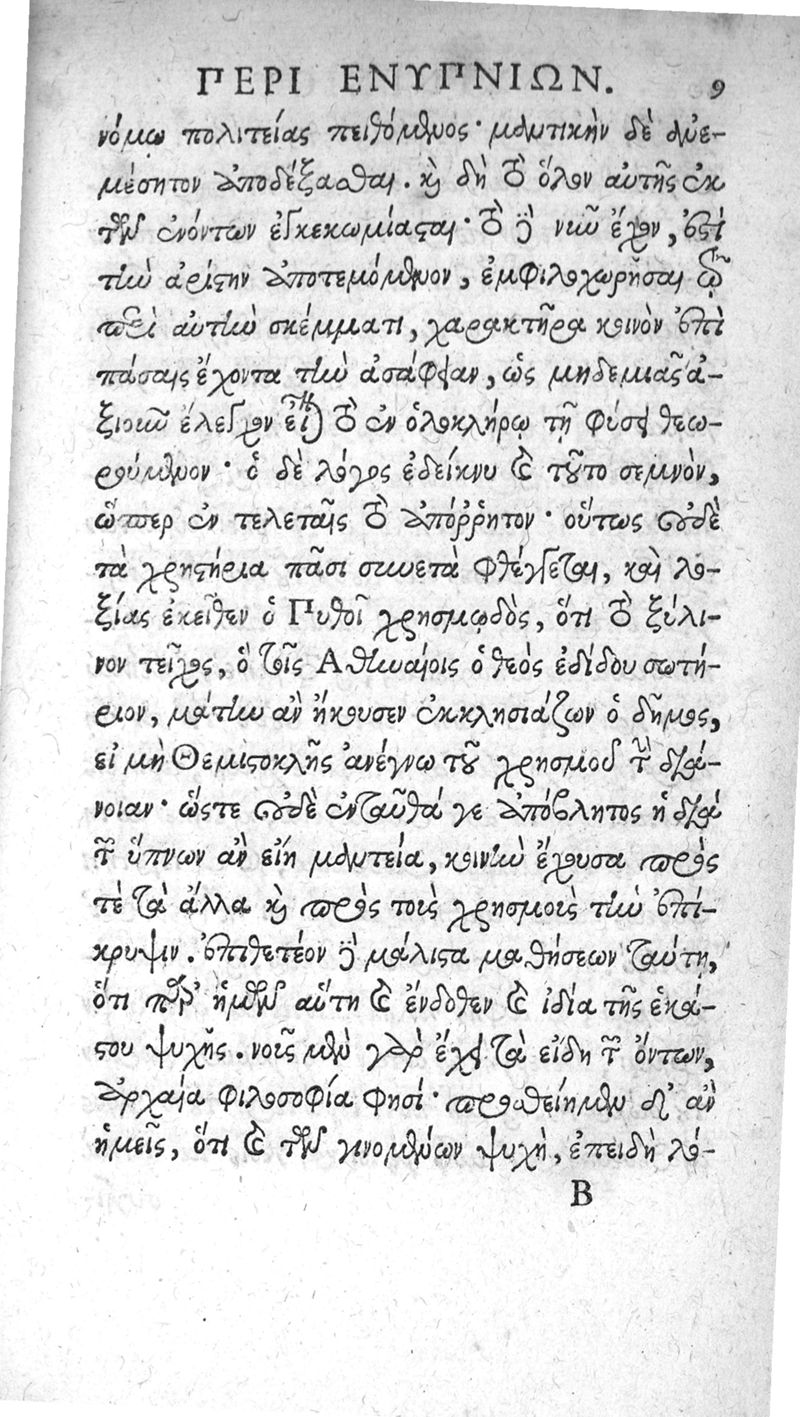 ΠΕΡΙ ΕΝΥΠΝΙΩΝ. 9
νόμῳ πολιτείας πειθόμενος· μαντικὴν δὲ ἀνε-
μέσητον ἀποδέξασθαι. καὶ δὴ τὸ ὅλον αὐτῆς ἐκ
τῶν ἐνόντων ἐγκεκωμίασται· τὸ δὲ νῦν ἔχον, ἐστὶ
τὴν ἀρίστην ἀποτεμόμενον, ἐμφιλοχωρῆσαι τῷ
περὶ αὐτὴν σκέμματι, χαρακτῆρα κοινὸν ἐπὶ
πάσαις ἔχοντα τὴν ἀσάφειαν, ὡς μηδεμιᾶς ἀ-
ξιοῦν ἔλεγχον εἶναι τὸ ἐν ὁλοκλήρῳ τῇ φύσει θεω-
ρούμενον· ὁ δὲ λόγος ἐδείκνυ καὶ τοῦτο σεμνὸν,
ὥσπερ ἐν τελεταῖς τὸ ἀπόῤῥητον· οὕτως οὐδὲ
τὰ χρηστήρια πᾶσι συνετὰ φθέγγεται, καὶ λο-
ξίας ἐκεῖθεν ὁ Πυθοῖ χρησμῳδὸς, ὅτι τὸ ξύλι-
νον τεῖχος, ὃ τοῖς Ἀθηναίοις ὁ θεὸς ἐδίδου σωτή-
ριον, μάτην ἂν ἤκουσεν ἐκκλησιάζων ὁ δῆμος,
εἰ μὴ Θεμιστοκλῆς ἀνέγνω τοῦ χρησμοῦ τὴν διά-
νοιαν· ὥστε οὐδὲ ἐνταῦθά γε ἀπόβλητος ἡ διὰ
τῶν ὕπνων ἂν εἴη μαντεία, κοινὴν ἔχουσα πρὸς
τὲ τὰ ἄλλα καὶ πρὸς τοὺς χρησμοὺς τὴν ἐπί-
κρυψιν. ἐπιθετέον δὲ μάλιστα μαθήσεων ταύτῃ,
ὅτι παρ' ἡμῶν αὕτη καὶ ἔνδοθεν καὶ ἰδία τῆς ἑκά-
στου ψυχῆς. νοῦς μὲν γὰρ ἔχει τὰ εἴδη τῶν ὄντων,
ἀρχαία φιλοσοφία φησί· προσθείημεν δ' ἂν
ἡμεῖς, ὅτι καὶ τῶν γινομένων ψυχὴ, ἐπειδὴ λό-
B